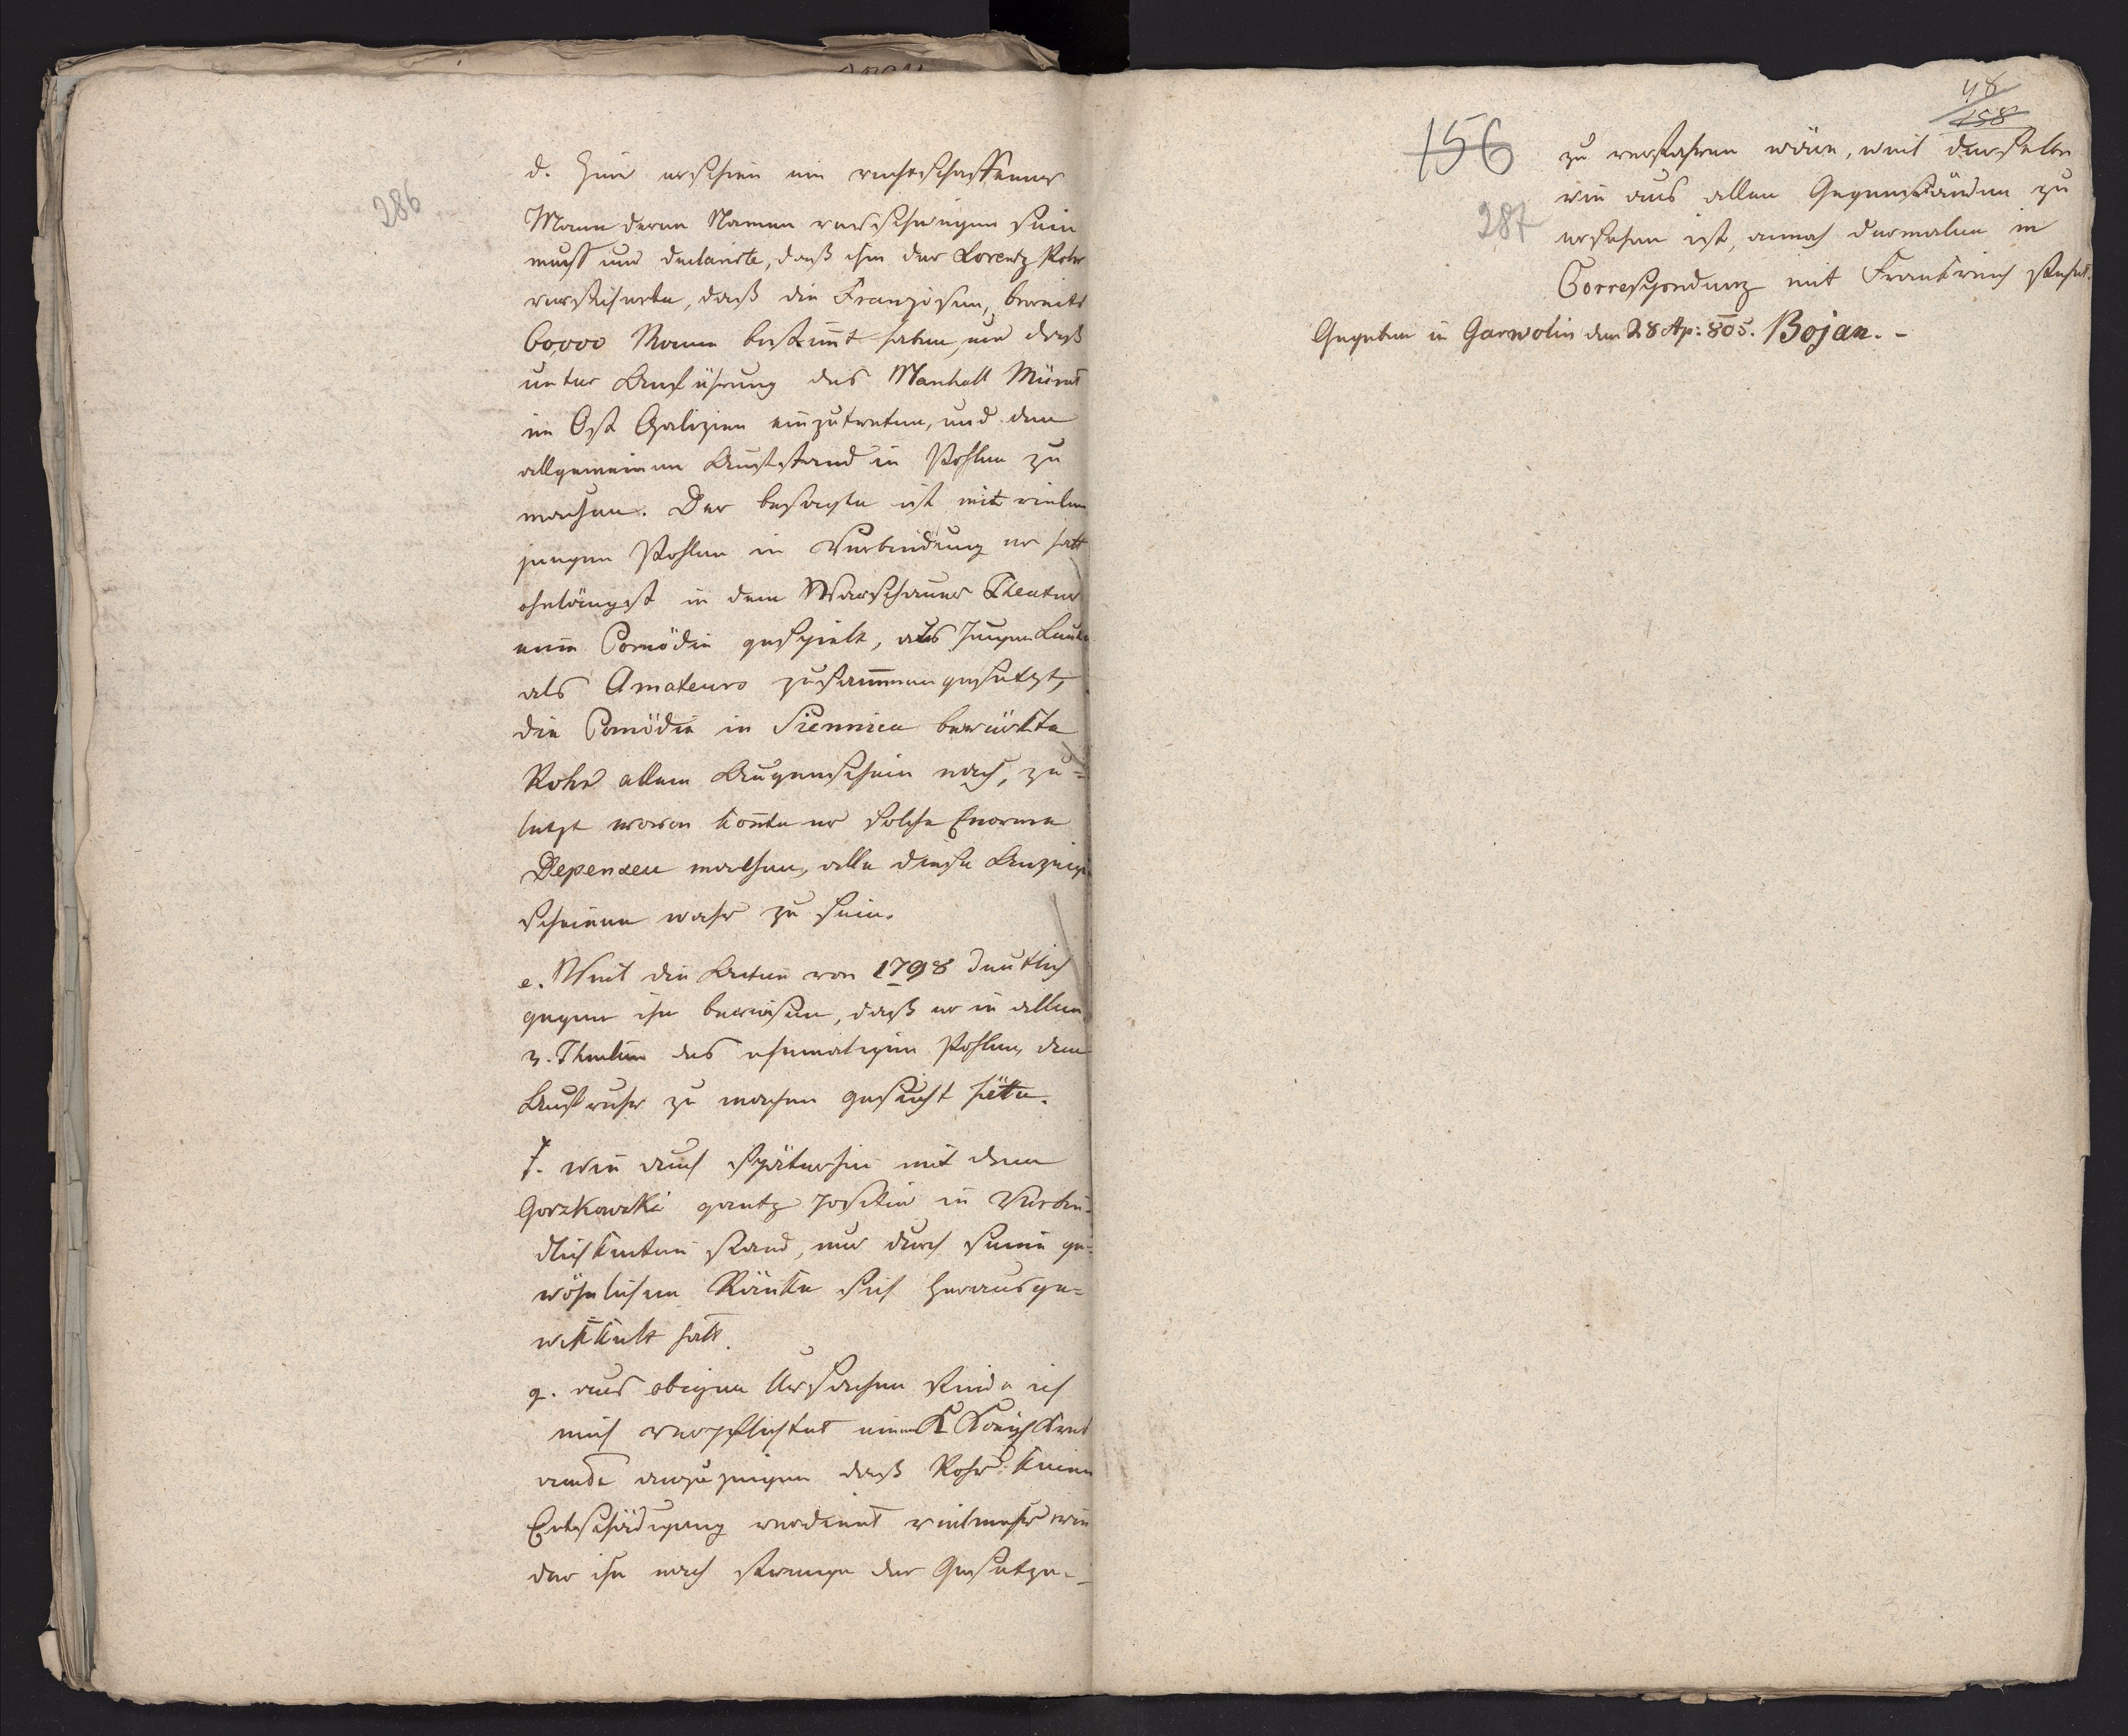 286
d. Hier erschien ein rechtschaffener
Mann deren Namen verschwigen sein
muss und declarirte, daß ihm der Lorentz Rohr
versicherte, daß die Franzosen, bereits
60,000 Mann bestimt haben, um daß
unter Anführung des Marshall Mürat
in Ost Galizien einzutreten, und den
allgemeinen Aufstand in Pohlen zu
machen. Der besagte ist mit vielen
jungen Pohlen in Verbindung er hatt
ohnlängst in dem Warschauer Theater
eine Comödie gespielt, aus Jungen Leuten
als Amateurs zusammengesetzt,
die Comödie in Siennica bewürkte
Rohr allem Augenschein nach, zu=
letzt wovon konte er solche Enorme
Depensen machen, alle diese Anzeigen
scheinen wahr zu sein.
e. Weil die Acten von 1798 deutlich
gegen ihn beweisen, daß er in allen
3. Theilen des ehemaligen Pohlen, den
Aufruhr zu machen gesucht hätte.
f. wie auch späterhin mit dem
Gorzkowski gantz positiv in Verbin=
dlichkeiten stand, und durch seine ge=
wöhnlichen Ränke sich herausge=
wikkelt hatt.
g. aus obigen Ursachen finde ich
mich verpflichtet einem K Königl Kreis
amte anzuzeigen daß Rohr keine
Entschädigung verdient vielmehr wie
der ihn nach strenge der Gesetze=
48
158
156
287
zu verfahren wäre, weil derselbe
wie aus allen Gegenständen zu
ersehen ist, annoch dermalen in
Correspondenz mit Frankreich stehet.
Gegeben in Garwolin den 28 Ap: 805. Bojan. -